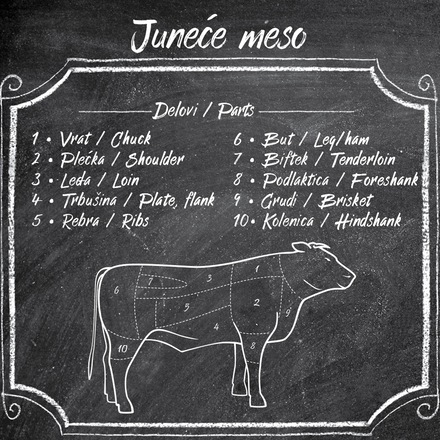 Juneće meso
Delovi / Parts
1 • Vrat / Chuck
2 • Plećka / Shoulder
3 • Leđa / Loin
4 • Trbušina / Plate, flank
5 • Rebra / Ribs
6 • But / Leg/ham
7 • Biftek / Tenderloin
8 • Podlaktica / Foreshank
9 • Grudi / Brisket
10 • Kolenica / Hindshank
1
3
7
6
2
5
9
4
10
8